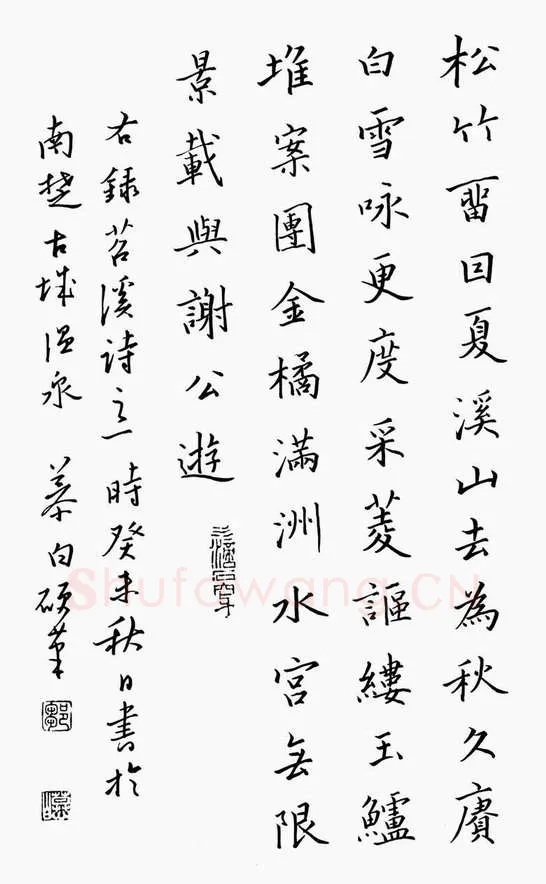 松竹畱囙夏溪山去為秋久賡
白雪咏更度采菱謳縷玉鱸
堆案團金橘滿洲水宮無限
景載與謝公遊
右録苕溪詩之一時癸未秋日書於
南楚古城温泉慕白碩筆
Shufawang.CN